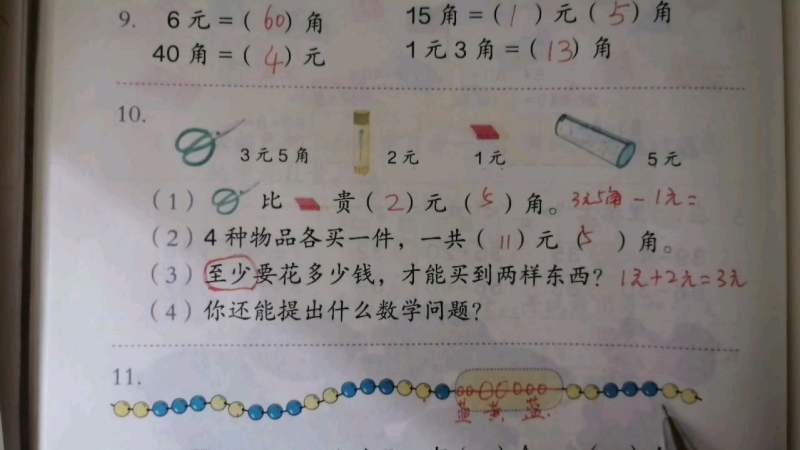 9. 6元=(60)角 15角=(1)元(5)角
40角=(4)元 1元3角=(13)角
10.
3元5角 2元 1元 5元
(1) 比 贵(2)元(5)角。3元5角-1元=
(2) 4种物品各买一件，一共(11)元(5)角。
(3) 至少要花多少钱，才能买到两样东西？1元+2元=3元
(4) 你还能提出什么数学问题？
11.
蓝 黄 蓝